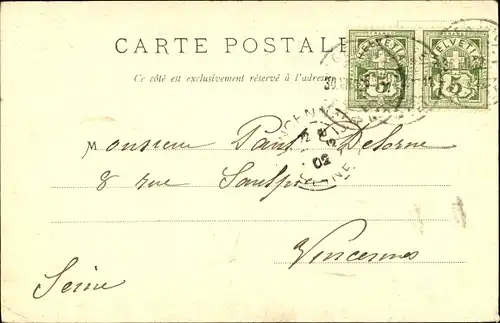 CARTE POSTALE
HELVETIA HELVETIA
5 5
Ce côté est exclusivement réservé à l'adresse
VINCENNES
02
Monsieur Paul Delorne
8 rue
Vincennes
Seine